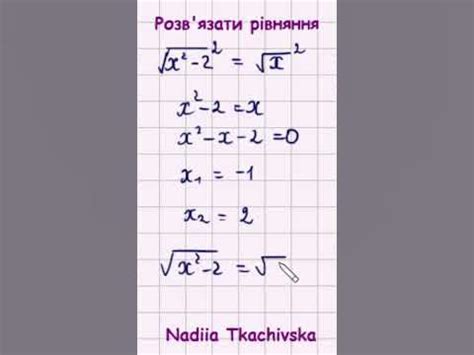 Розв'язати рівняння
√x²-2² = √x²
x²-2 = x
x²-x-2 = 0
x₁ = -1
x₂ = 2
√x²-2 = √
Nadiia Tkachivska